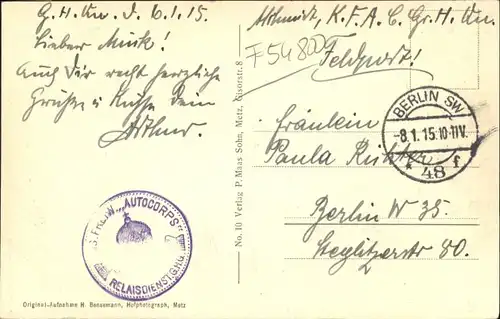 G. H. Qu. d. 6.1.15.
Lieber Musik!
Auch Dir recht herzliche
Grüße u Küsse Dein
Arthur.
K. F. A. C. Gr. H. Qu.
F54800
Feldpost!
BERLIN SW
-8.1.15.10-11V.
* 48 f
Fräulein
Paula
Berlin W 35.
Steglitzerstr 80.
No. 10 Verlag P. Maas Sohn, Metz, 8
FREIW. „AUTOCORPS"
RELAISDIENST G.H.Q.
Original-Aufnahme H. Bensemann, Hofphotograph, Metz